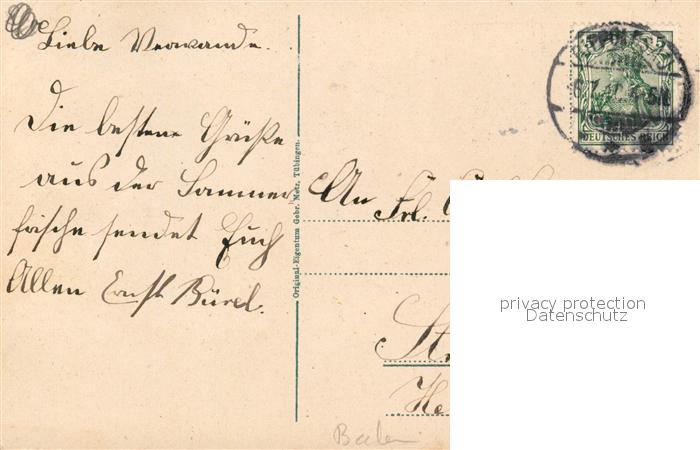 Liebe Verwande.
Die besten Grüße
aus der Sommer
frische sendet Euch
Allen Ernst Bürel.
Original-Eigentum Gebr. Metz, Tübingen.
5 5
DEUTSCHES REICH
An Frl.
St
He
privacy protection
Datenschutz